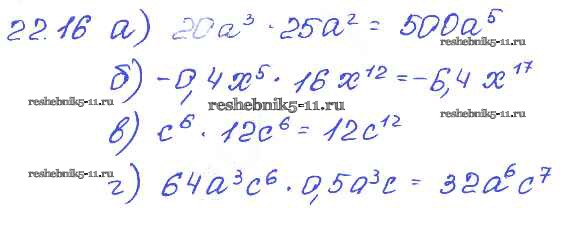 22.16 а) 20a³ · 25a² = 500a⁵
reshebnik5-11.ru
б) -0,4x⁵ · 16x¹² = -6,4x¹⁷
reshebnik5-11.ru reshebnik5-11.ru reshebnik5-11.ru
в) c⁶ · 12c⁶ = 12c¹²
reshebnik5-11.ru reshebnik5-11.ru
г) 64a³c⁶ · 0,5a³c = 32a⁶c⁷